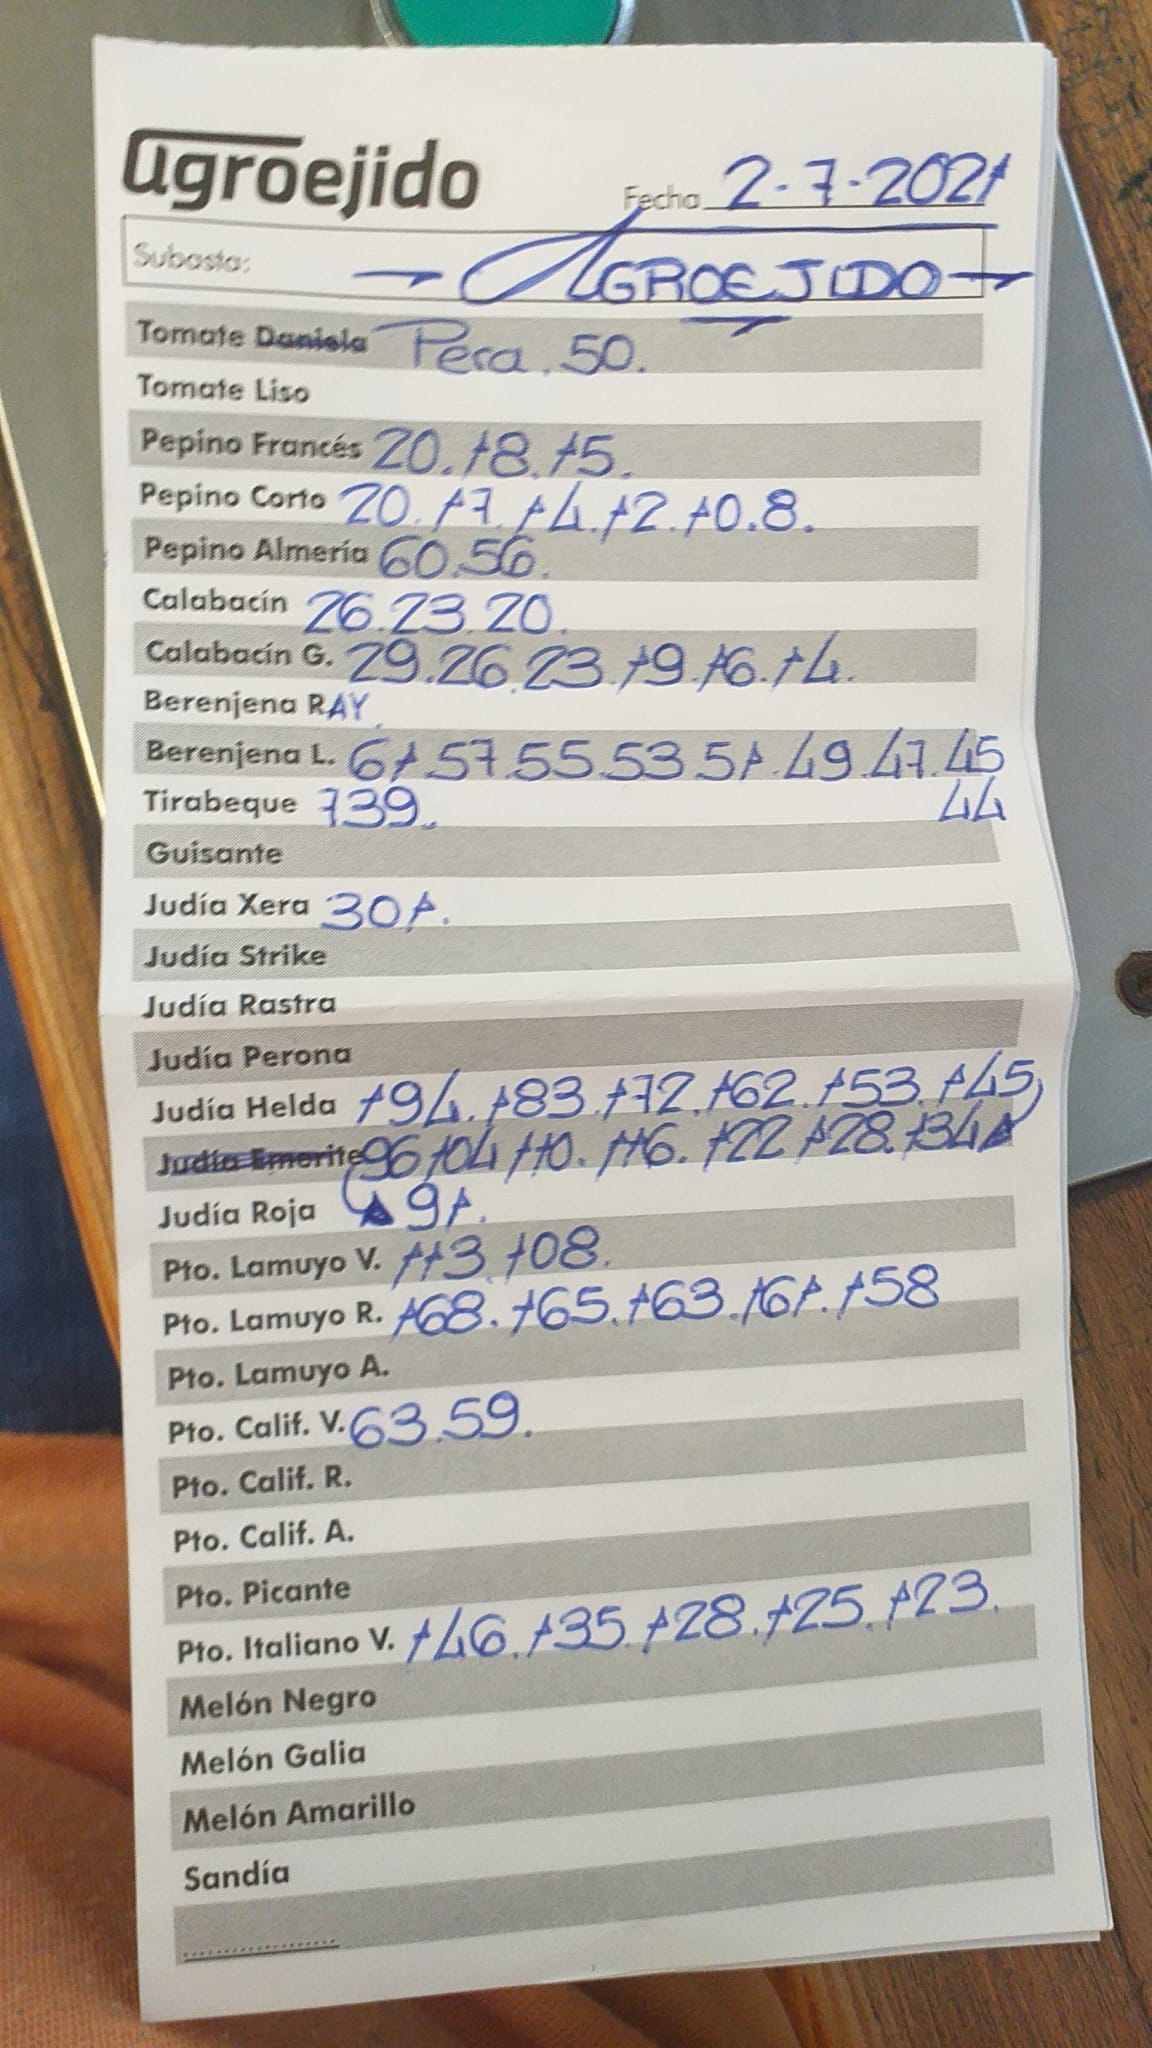 agroejido
Fecha 2-7-2021
Subasta: AGROEJIDO
Tomate Daniela Pera. 50.
Tomate Liso
Pepino Francés 20. 18. 15.
Pepino Corto 20. 17. 14. 12. 10. 8.
Pepino Almería 60. 56.
Calabacín 26. 23. 20.
Calabacín G. 29. 26. 23. 19. 16. 14.
Berenjena RAY
Berenjena L. 61. 57. 55. 53. 51. 49. 47. 45
44
Tirabeque 739.
Guisante
Judía Xera 301.
Judía Strike
Judía Rastra
Judía Perona
Judía Helda 194. 183. 172. 162. 153. 145
Judía Emerite 96 104 110. 116. 122 128. 134
Judía Roja 91.
Pto. Lamuyo V. 113. 108.
Pto. Lamuyo R. 168. 165. 163. 161. 158
Pto. Lamuyo A.
Pto. Calif. V. 63. 59.
Pto. Calif. R.
Pto. Calif. A.
Pto. Picante
Pto. Italiano V. 146. 135. 128. 125. 123.
Melón Negro
Melón Galia
Melón Amarillo
Sandía